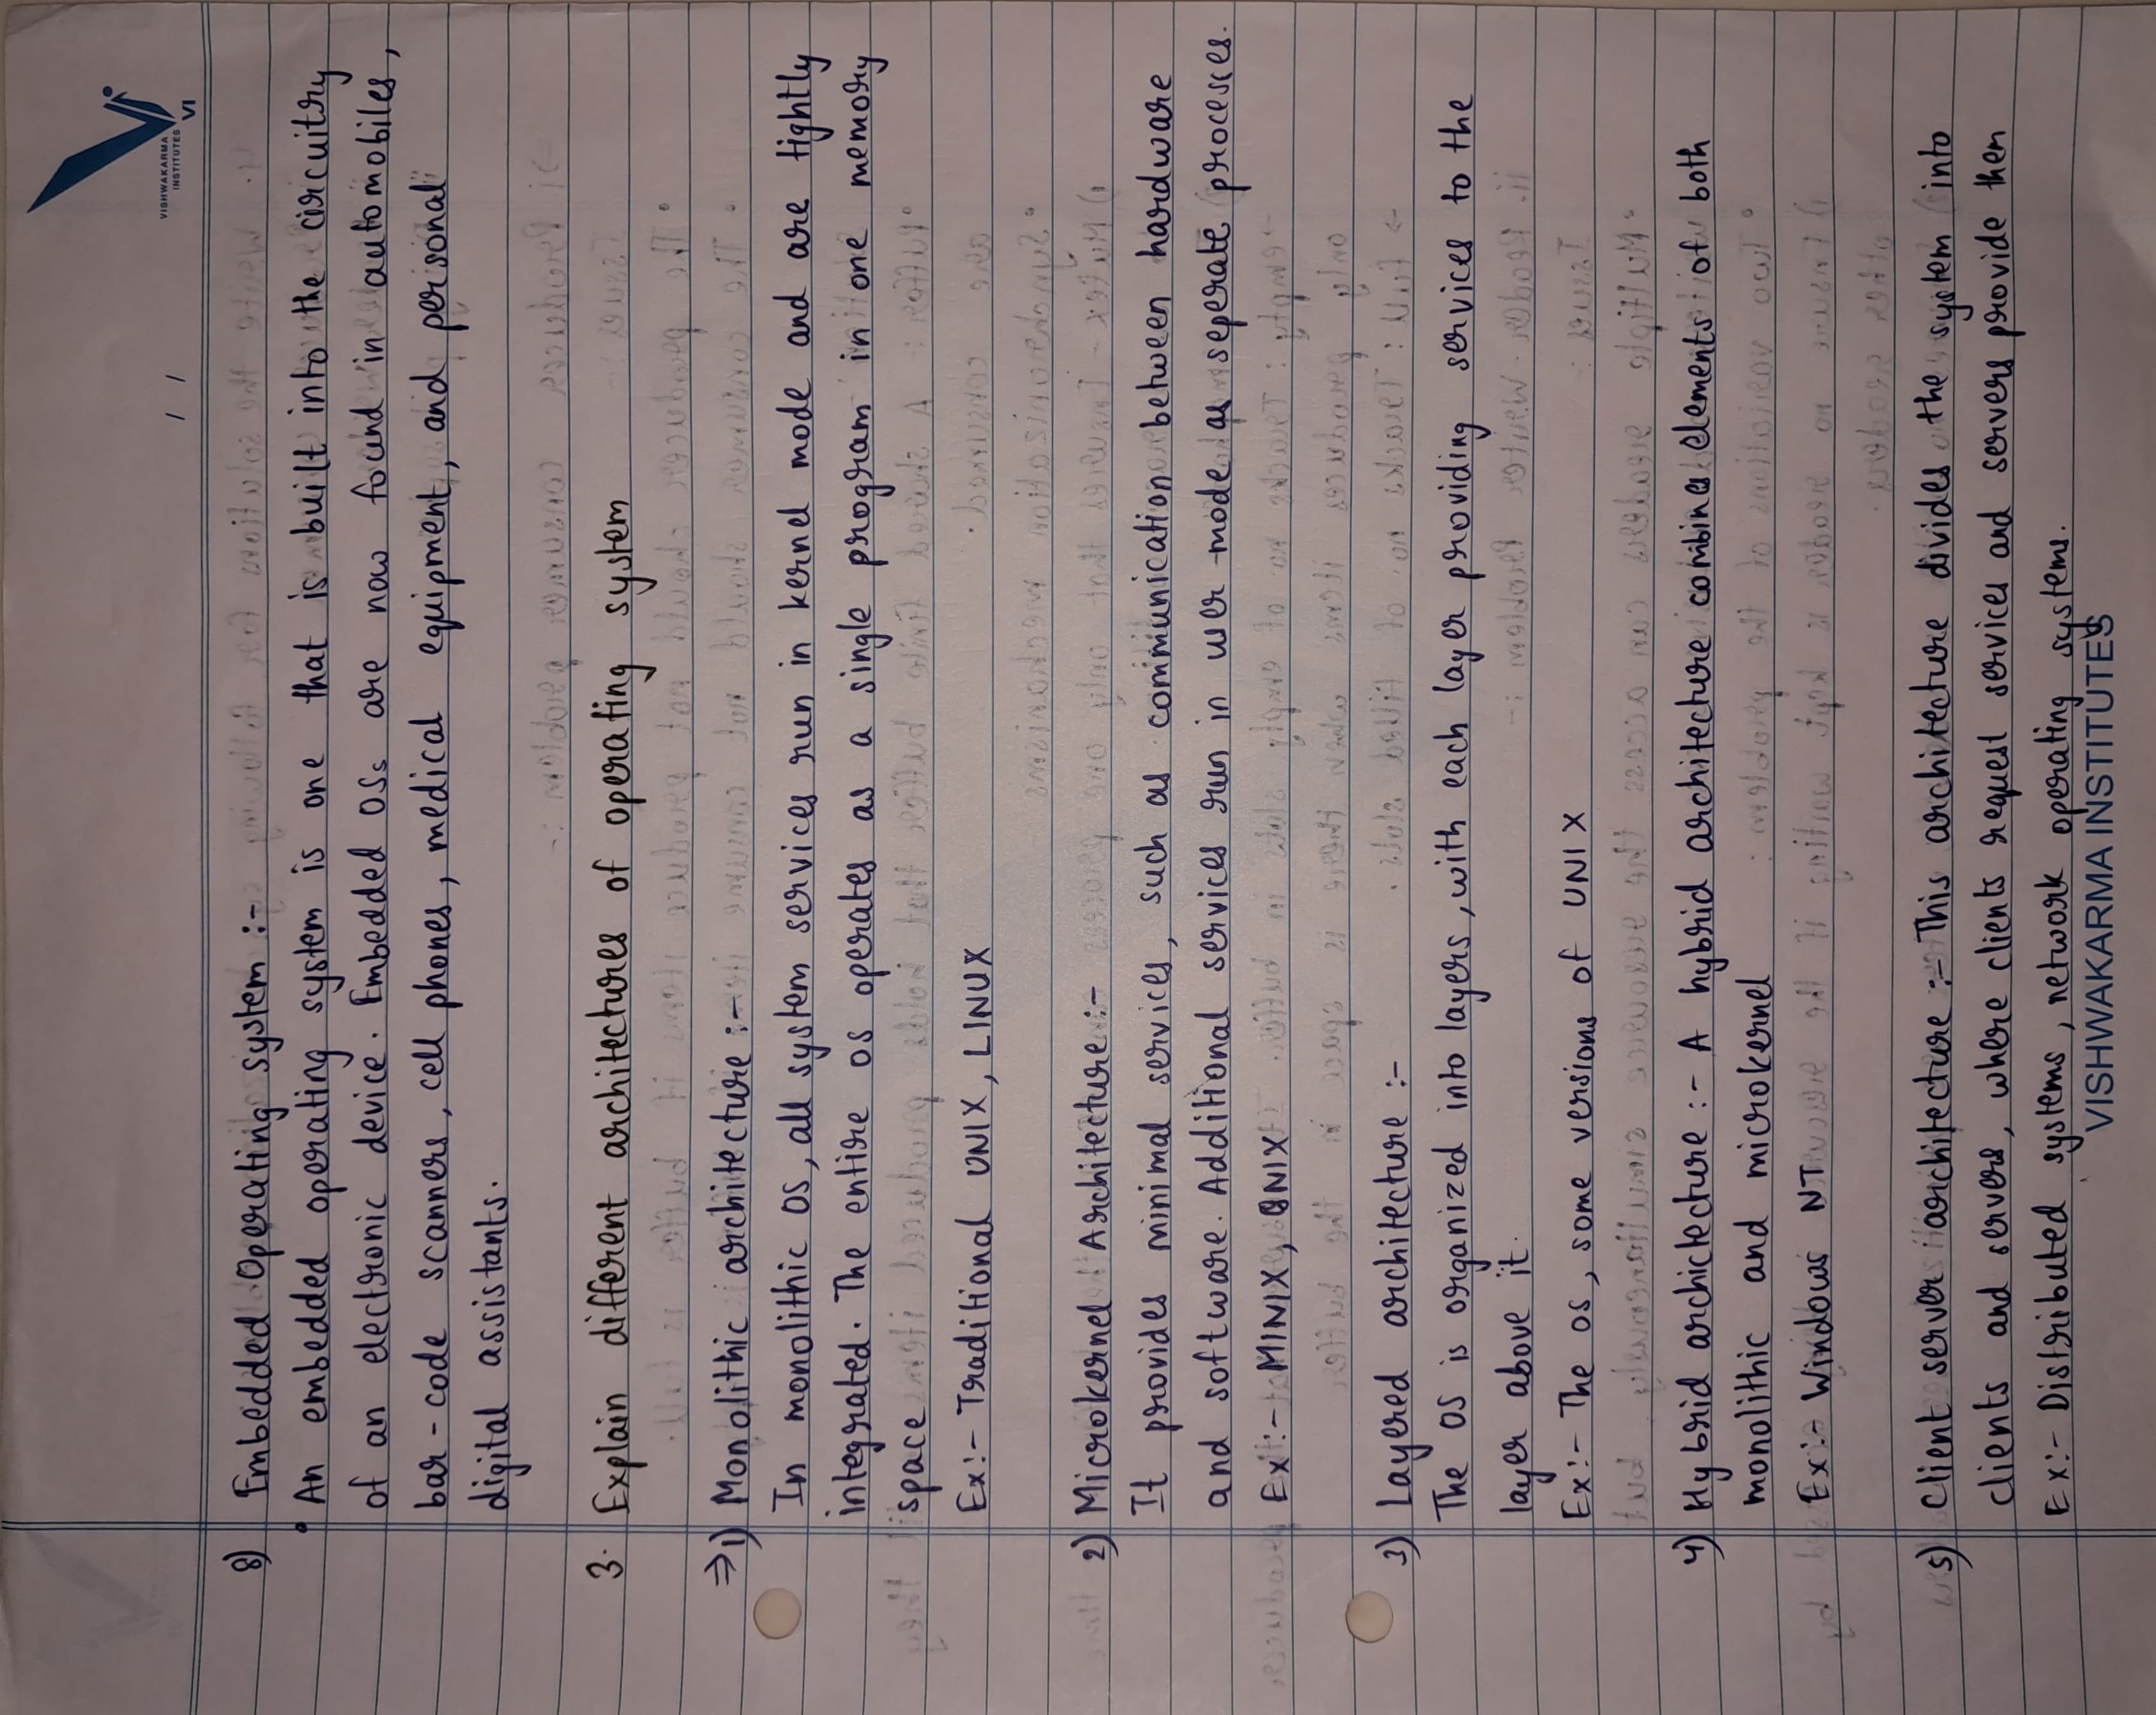 VISHWAKARMA
INSTITUTES
VI
/ /
8) Embedded Operating system :-
• An embedded operating system is one that is built into the circuitry
of an electronic device. Embedded OSs are now found in automobiles,
bar-code scanners, cell phones, medical equipment, and personal
digital assistants.
3. Explain different architectures of operating system
⇒ 1) Monolithic architecture :-
In monolithic OS, all system services run in kernel mode and are tightly
integrated. The entire os operates as a single program in one memory
space
Ex:- Traditional UNIX, LINUX
2) Microkernel Architecture :-
It provides minimal services, such as communication between hardware
and software. Additional services run in user mode as seperate processes.
Ex :- MINIX, QNIX
3) Layered architecture :-
The OS is organized into layers, with each layer providing services to the
layer above it.
Ex:- The os, some versions of UNIX
4) Hybrid archictecture :- A hybrid architecture combines elements of both
monolithic and microkernel
Ex:- Windows NT
5) Client server architecture :- This architecture divides the system into
clients and servers, where clients request services and servers provide them
Ex:- Distributed systems, network operating systems.
VISHWAKARMA INSTITUTES